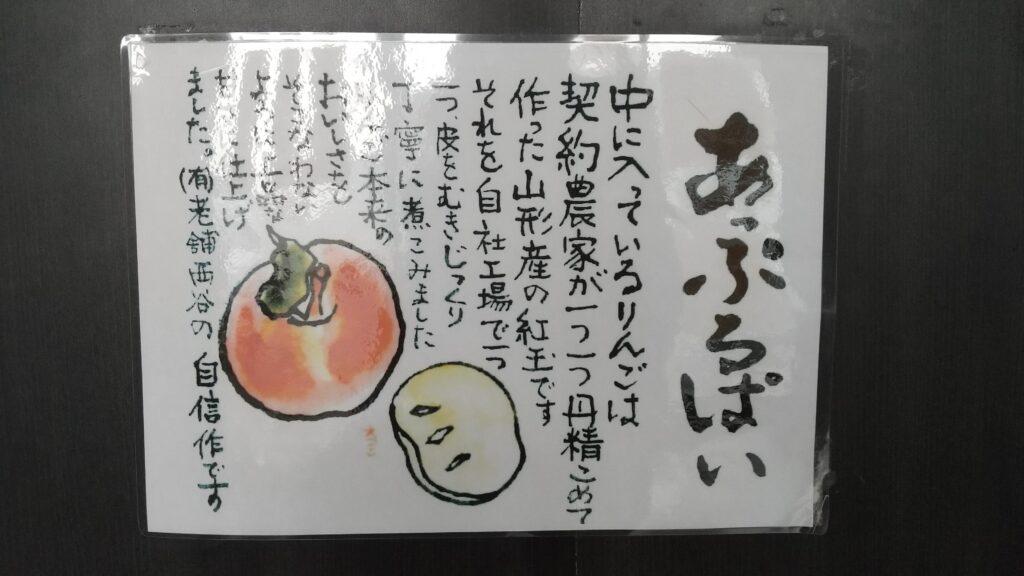 あっぷるぱい
中に入っているりんごは
契約農家が一つ一つ丹精こめて
作った山形産の紅玉です
それを自社工場で一つ
一つ、皮をむきじっくり
丁寧に煮こみました
りんご本来の
おいしさを
そこなわない
ように
仕上げ
ました。(有)老舗西谷の自信作です